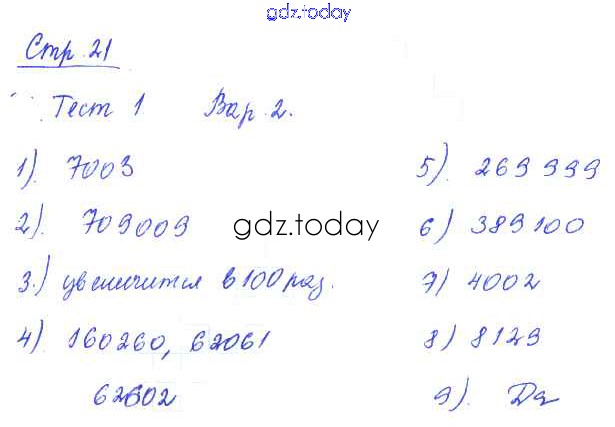 gdz.today
Стр. 21
Тест 1 Вар. 2.
1). 7003
2). 709009
3.) увеличится в 100 раз.
4). 160260, 62061
62602
gdz.today
5). 269 999
6) 389100
7) 4002
8) 8129
9). Да